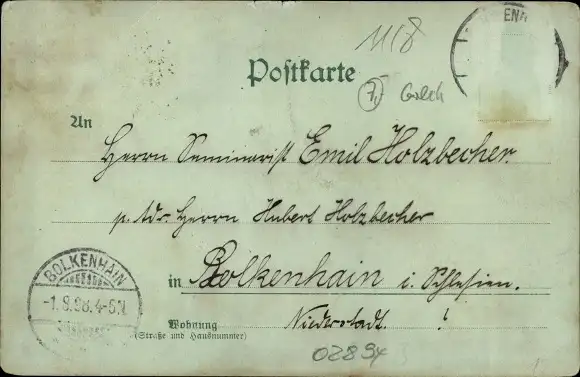 1118
ENH
Postkarte
7,
An
Herrn Seminarist Emil Holzbecher.
p. Adr. Herrn Hubert Holzbecher
BOLKENHAIN
-1.8.98.4-5N
in Bolkenhain i. Schlesien.
Wohnung Niederstadt. !
(Straße und Hausnummer)
02894